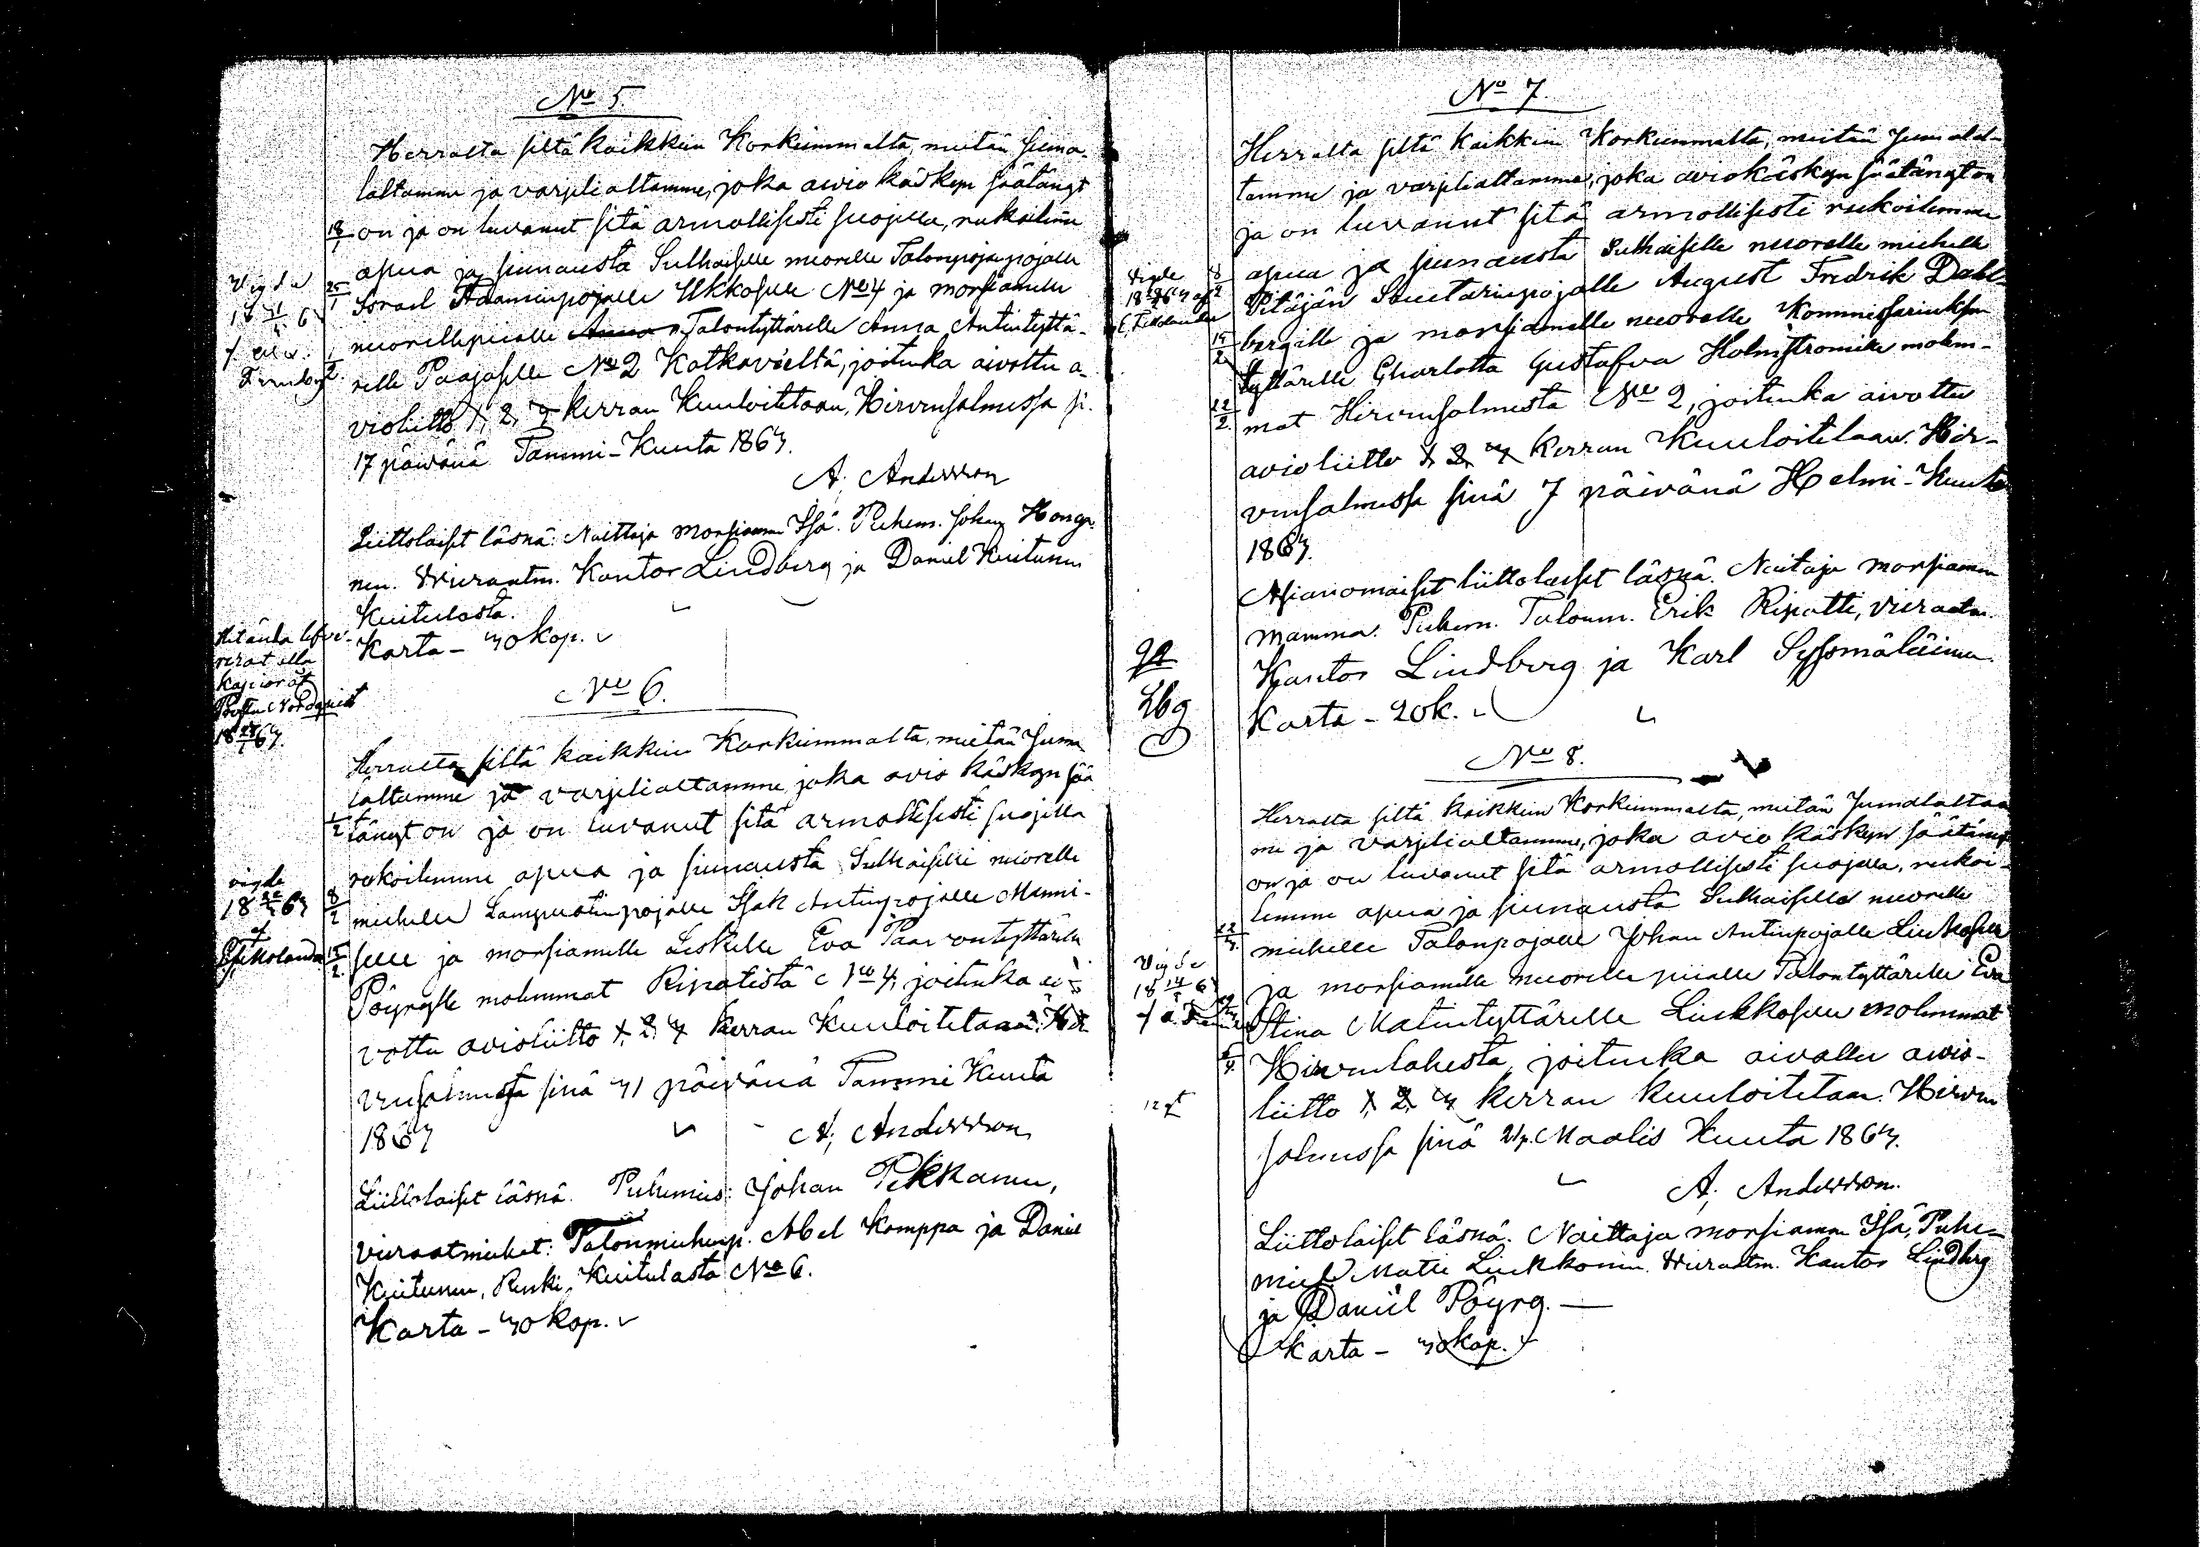 No 5.
Herralta siltä kaikkein Korkeimmalta, meitän Juma-
laltamme ja varjelialtamme, joka avio käskyn säätänyt
on ja on luvanut sitä armollisesti suojella, rukoilemme
apua ja siunausta Sulhaiselle nuorelle Talonpojanpojalle
Israel Adaminpojalle Ukkoselle No 4 ja morsiamelle
nuorellepiialle Talontyttärelle Anna Antintyttä-
relle Paajaselle No 2 Katkavieltä, joitenka aivottu a-
violiitto 1, 2, 3 kerran Kuuloitetaan, Hirvensalmessa si.
17 päivänä Tammi-Kuuta 1863.
A; Andersson
Liittolaiset läsnä: Naittaja Morsiamen Isä. Puhem. Johan Honga-
nen. Vieraatm. Kantor Lindberg ja Daniel Kuitunen
Kuitulasta.
Karta - 30 kop.
No 6.
Herralta siltä kaikkein Korkeimmalta, meitän Juma
laltamme ja varjelialtamme, joka avio käskyn sää
tänyt on ja on luvanut sitä armollisesti suojella
rukoilemme apua ja siunausta Sulhaiselle nuorelle
miehelle Lampuotinpojalle Isak Antinpojalle Manni-
selle ja morsiamelle Leskelle Eva Paavontyttärelle
Pöyryselle molemmat Ripatista No 4, joitenka ai-
vottu avioliitto 1, 2, 3 kerran Kuuloitetaan. Hir
vensalmessa sinä 31 päivänä Tammi Kuuta
1863
A; Andersson
Liittolaiset läsnä. Puhemies: Johan Pekkanen,
vieraatmiehet: Talonmiehenp. Abel Komppa ja Daniel
Kuitunen, Renki, Kuitulasta No 6.
Karta - 30 kop.
vigde
18 63
af
12
Lbg
No 7.
Herralta siltä kaikkein Korkeimmalta, meitän Jumalal-
tamme ja varjelialtamme, joka aviokäskyn säätänyt on
ja on luvanut sitä armollisesti rukoilemme
apua ja siunausta Sulhaiselle nuorelle miehelle
Pitäjän Suutarinpojalle August Fredrik Dahl-
bergille ja morsiamelle nuorelle Kommissariuksen
tyttärelle Charlotta Gustafva Holmströmille molem-
mat Hirvensalmesta No 2, joitenka aivottu
avioliitto 1, 2, 3 kerran Kuuloitetaan. Hir-
vensalmessa sinä 7 päivänä Helmi-Kuuta
1863.
Asianomaiset liittolaiset läsnä. Naitaja morsiamen
mamma. Puhem. Talonm. Erik Ripatti, vieraatm.
Kantor Lindberg ja Karl Syssmäläinen.
Karta - 20 k.
No 8.
Herralta siltä kaikkein Korkeimmalta, meitän Jumalaltam
me ja varjelialtamme, joka avio käskyn säätänyt
on ja on luvanut sitä armollisesti suojella, rukoi-
lemme apua ja siunausta Sulhaiselle nuorelle
miehelle Talonpojalle Johan Antinpojalle Liukkoselle
ja morsiamelle nuorelle piialle Talontyttärelle Eva
Stina Matintyttärelle Liukkoselle molemmat
Hirvenlahesta, joitenka aivottu avio-
liitto 1, 2, 3 kerran kuuloitetaan. Hirven
salmessa sinä 21 p. Maalis Kuuta 1863.
A; Andersson.
Liittolaiset läsnä. Naittaja morsiamen Isä, Puhe-
mies Matti Liukkonen. Vieraatm. Kantor Lindberg
ja Daniel Pöyry. —
Karta - 30 kop.